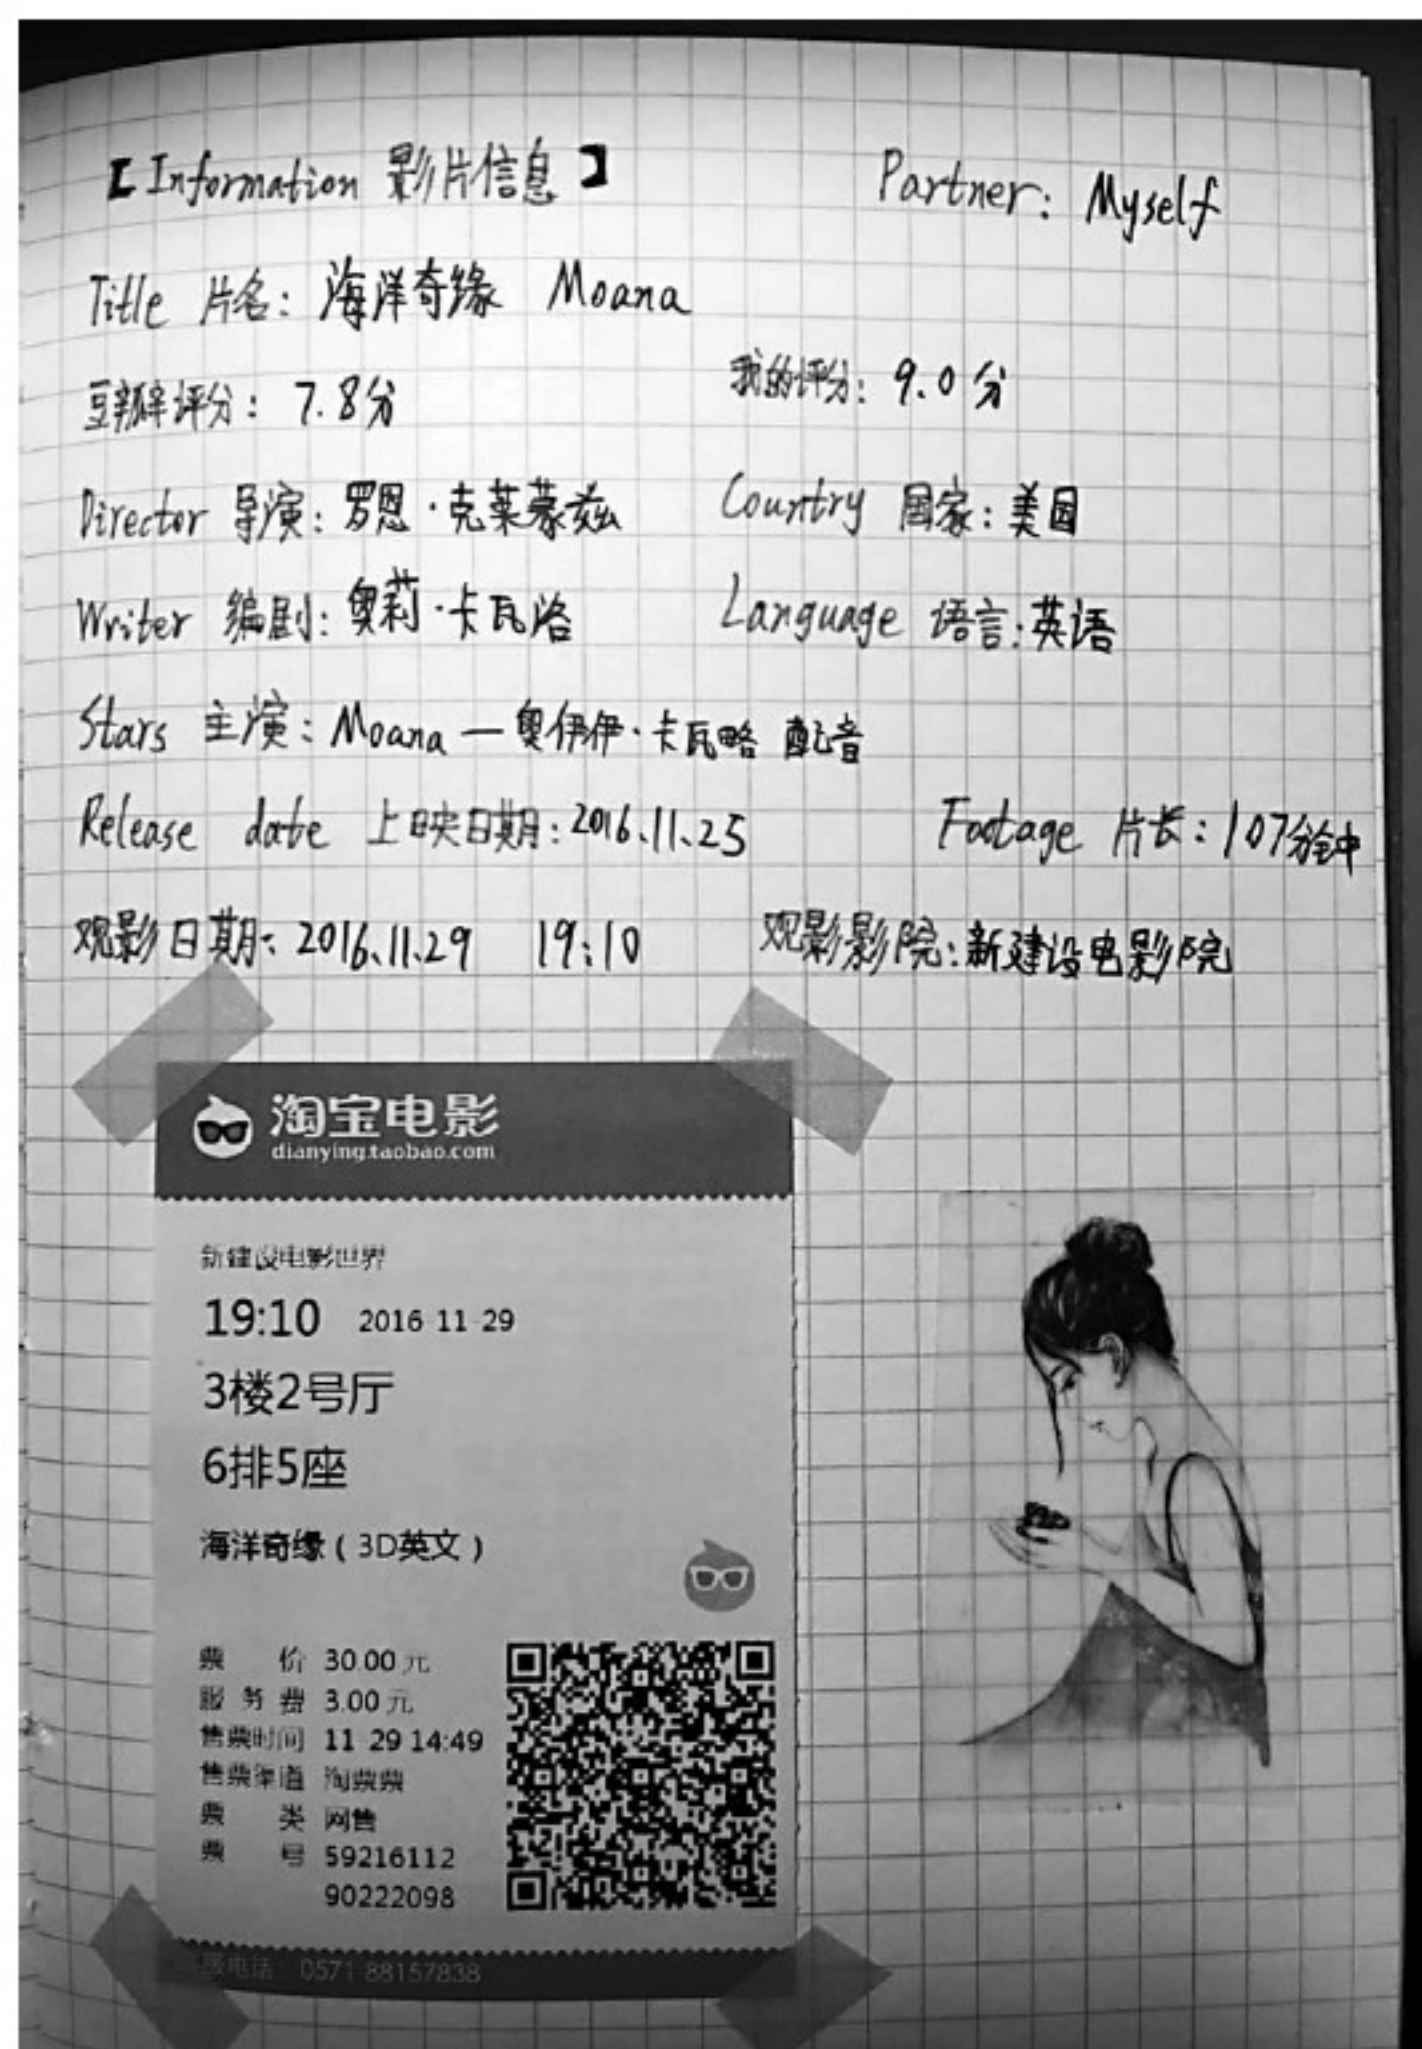 【Information 影片信息】 Partner: Myself
Title 片名: 海洋奇缘 Moana
豆瓣评分: 7.8分 我的评分: 9.0分
Director 导演: 罗恩·克莱蒙兹 Country 国家: 美国
Writer 编剧: 奥莉·卡瓦洛 Language 语言: 英语
Stars 主演: Moana — 奥伊伊·卡瓦略 配音
Release date 上映日期: 2016.11.25 Footage 片长: 107分钟
观影日期: 2016.11.29 19:10 观影影院: 新建设电影院
淘宝电影
dianying.taobao.com
新建设电影世界
19:10 2016-11-29
3楼2号厅
6排5座
海洋奇缘(3D英文)
票价 30.00元
服务费 3.00元
售票时间 11-29 14:49
售票渠道 淘票票
票类 网售
票号 59216112
90222098
电话: 0571-88157838